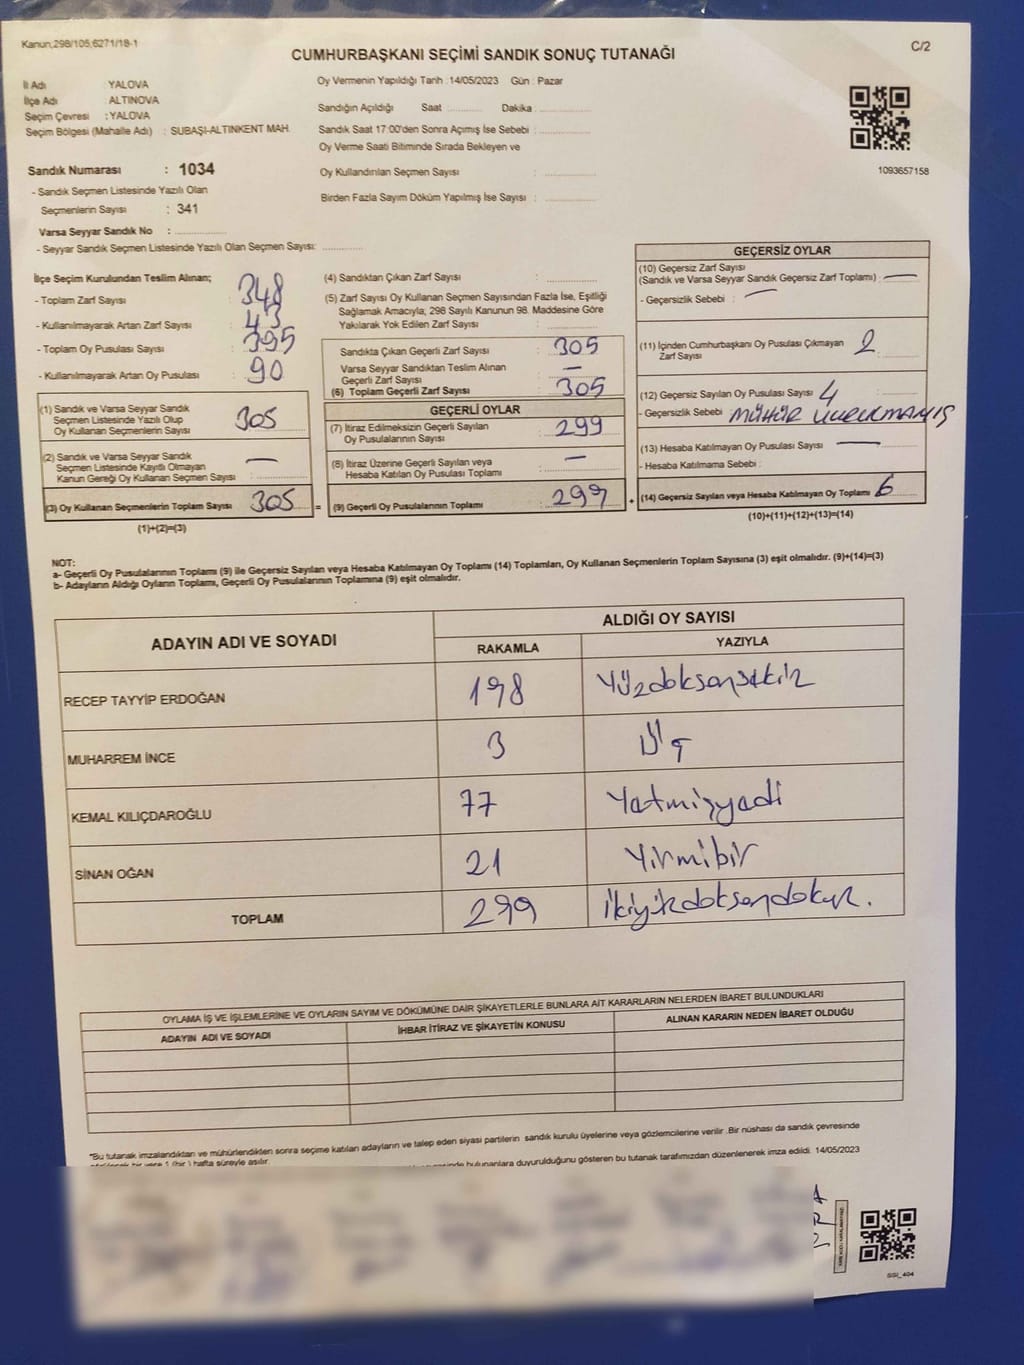 Kanun,298/105,6271/18-1
CUMHURBAŞKANI SEÇİMİ SANDIK SONUÇ TUTANAĞI
C/2
İl Adı : YALOVA
İlçe Adı : ALTINOVA
Seçim Çevresi : YALOVA
Seçim Bölgesi (Mahalle Adı) : SUBAŞI-ALTINKENT MAH.
Oy Vermenin Yapıldığı Tarih : 14/05/2023 Gün : Pazar
Sandığın Açıldığı Saat ............ Dakika ............
Sandık Saat 17:00'den Sonra Açımış İse Sebebi : ............
Oy Verme Saati Bitiminde Sırada Bekleyen ve
Oy Kullandırılan Seçmen Sayısı : ............
Birden Fazla Sayım Döküm Yapılmış İse Sayısı : ............
1093657158
Sandık Numarası : 1034
- Sandık Seçmen Listesinde Yazılı Olan
Seçmenlerin Sayısı : 341
Varsa Seyyar Sandık No : ............
- Seyyar Sandık Seçmen Listesinde Yazılı Olan Seçmen Sayısı: ............
İlçe Seçim Kurulundan Teslim Alınan;
- Toplam Zarf Sayısı : 348
- Kullanılmayarak Artan Zarf Sayısı : 43
- Toplam Oy Pusulası Sayısı : 395
- Kullanılmayarak Artan Oy Pusulası : 90
(1) Sandık ve Varsa Seyyar Sandık
Seçmen Listesinde Yazılı Olup
Oy Kullanan Seçmenlerin Sayısı : 305
(2) Sandık ve Varsa Seyyar Sandık
Seçmen Listesinde Kayıtlı Olmayan
Kanun Gereği Oy Kullanan Seçmen Sayısı : —
(3) Oy Kullanan Seçmenlerin Toplam Sayısı : 305 =
(1)+(2)=(3)
(4) Sandıktan Çıkan Zarf Sayısı : ............
(5) Zarf Sayısı Oy Kullanan Seçmen Sayısından Fazla İse, Eşitliği
Sağlamak Amacıyla, 298 Sayılı Kanunun 98. Maddesine Göre
Yakılarak Yok Edilen Zarf Sayısı : ............
Sandıkta Çıkan Geçerli Zarf Sayısı : 305
Varsa Seyyar Sandıktan Teslim Alınan
Geçerli Zarf Sayısı : —
(6) Toplam Geçerli Zarf Sayısı : 305
GEÇERLİ OYLAR
(7) İtiraz Edilmeksizin Geçerli Sayılan
Oy Pusulalarının Sayısı : 299
(8) İtiraz Üzerine Geçerli Sayılan veya
Hesaba Katılan Oy Pusulası Toplamı : —
(9) Geçerli Oy Pusulalarının Toplamı : 299 +
GEÇERSİZ OYLAR
(10) Geçersiz Zarf Sayısı
(Sandık ve Varsa Seyyar Sandık Geçersiz Zarf Toplamı) : —
- Geçersizlik Sebebi : —
(11) İçinden Cumhurbaşkanı Oy Pusulası Çıkmayan
Zarf Sayısı : 2
(12) Geçersiz Sayılan Oy Pusulası Sayısı : 4
- Geçersizlik Sebebi : MÜHÜR VURULMAMIŞ
(13) Hesaba Katılmayan Oy Pusulası Sayısı : —
- Hesaba Katılmama Sebebi :
(14) Geçersiz Sayılan veya Hesaba Katılmayan Oy Toplamı : 6
(10)+(11)+(12)+(13)=(14)
NOT:
a- Geçerli Oy Pusulalarının Toplamı (9) ile Geçersiz Sayılan veya Hesaba Katılmayan Oy Toplamı (14) Toplamları, Oy Kullanan Seçmenlerin Toplam Sayısına (3) eşit olmalıdır. (9)+(14)=(3)
b- Adayların Aldığı Oyların Toplamı, Geçerli Oy Pusulalarının Toplamına (9) eşit olmalıdır.
ADAYIN ADI VE SOYADI
ALDIĞI OY SAYISI
RAKAMLA YAZIYLA
RECEP TAYYİP ERDOĞAN 198 Yüzdoksansekiz
MUHARREM İNCE 3 Üç
KEMAL KILIÇDAROĞLU 77 Yetmişyedi
SİNAN OĞAN 21 Yirmibir
TOPLAM 299 ikiyüzdoksandokuz.
OYLAMA İŞ VE İŞLEMLERİNE VE OYLARIN SAYIM VE DÖKÜMÜNE DAİR ŞİKAYETLERLE BUNLARA AİT KARARLARIN NELERDEN İBARET BULUNDUKLARI
ADAYIN ADI VE SOYADI İHBAR İTİRAZ VE ŞİKAYETİN KONUSU ALINAN KARARIN NEDEN İBARET OLDUĞU
*Bu tutanak imzalandıktan ve mühürlendikten sonra seçime katılan adayların ve talep eden siyasi partilerin sandık kurulu üyelerine veya gözlemcilerine verilir .Bir nüshası da sandık çevresinde
bir yere 1 (bir ) hafta süreyle asılır. bulunanlara duyurulduğunu gösteren bu tutanak tarafımızdan düzenlenerek imza edildi. 14/05/2023
SSI_404